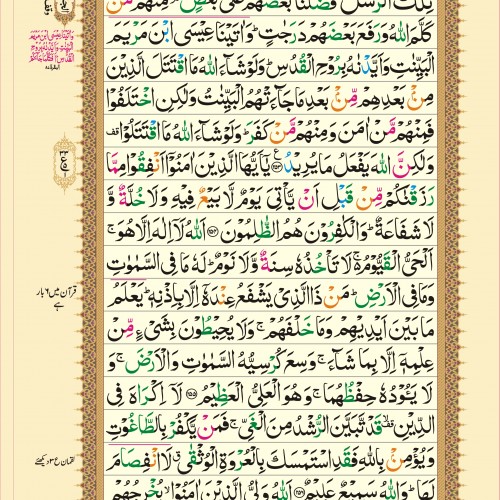 تِلْكَ الرُّسُلُ فَضَّلْنَا بَعْضَهُمْ عَلٰى بَعْضٍ ۘ مِنْهُمْ مَّنْ
كَلَّمَ اللّٰهُ وَرَفَعَ بَعْضَهُمْ دَرَجٰتٍ ؕ وَاٰتَيْنَا عِيْسَى ابْنَ مَرْيَمَ
الْبَيِّنٰتِ وَاَيَّدْنٰهُ بِرُوْحِ الْقُدُسِ ؕ وَلَوْ شَآءَ اللّٰهُ مَا اقْتَتَلَ الَّذِيْنَ
مِنْۢ بَعْدِهِمْ مِّنْۢ بَعْدِ مَا جَآءَتْهُمُ الْبَيِّنٰتُ وَلٰكِنِ اخْتَلَفُوْا
فَمِنْهُمْ مَّنْ اٰمَنَ وَمِنْهُمْ مَّنْ كَفَرَ ؕ وَلَوْ شَآءَ اللّٰهُ مَا اقْتَتَلُوْا قف
وَلٰكِنَّ اللّٰهَ يَفْعَلُ مَا يُرِيْدُ ﴿۲۵۳﴾ يٰۤاَيُّهَا الَّذِيْنَ اٰمَنُوْۤا اَنْفِقُوْا مِمَّا
رَزَقْنٰكُمْ مِّنْ قَبْلِ اَنْ يَّاْتِيَ يَوْمٌ لَّا بَيْعٌ فِيْهِ وَلَا خُلَّةٌ وَّ
لَا شَفَاعَةٌ ؕ وَالْكٰفِرُوْنَ هُمُ الظّٰلِمُوْنَ ﴿۲۵۴﴾ اَللّٰهُ لَاۤ اِلٰهَ اِلَّا هُوَ ۚ
اَلْحَيُّ الْقَيُّوْمُ ۚ لَا تَاْخُذُهٗ سِنَةٌ وَّلَا نَوْمٌ ؕ لَهٗ مَا فِي السَّمٰوٰتِ
وَمَا فِي الْاَرْضِ ؕ مَنْ ذَا الَّذِيْ يَشْفَعُ عِنْدَهٗۤ اِلَّا بِاِذْنِهٖ ؕ يَعْلَمُ
مَا بَيْنَ اَيْدِيْهِمْ وَمَا خَلْفَهُمْ ۚ وَلَا يُحِيْطُوْنَ بِشَيْءٍ مِّنْ
عِلْمِهٖۤ اِلَّا بِمَا شَآءَ ۚ وَسِعَ كُرْسِيُّهُ السَّمٰوٰتِ وَالْاَرْضَ ۚ وَ
لَا يَـُٔوْدُهٗ حِفْظُهُمَا ۚ وَهُوَ الْعَلِيُّ الْعَظِيْمُ ﴿۲۵۵﴾ لَاۤ اِكْرَاهَ فِي
الدِّيْنِ ۙ قَدْ تَّبَيَّنَ الرُّشْدُ مِنَ الْغَيِّ ۚ فَمَنْ يَّكْفُرْ بِالطَّاغُوْتِ
وَيُؤْمِنْۢ بِاللّٰهِ فَقَدِ اسْتَمْسَكَ بِالْعُرْوَةِ الْوُثْقٰى ۗ لَا انْفِصَامَ
لَهَا ؕ وَاللّٰهُ سَمِيْعٌ عَلِيْمٌ ﴿۲۵۶﴾ اَللّٰهُ وَلِيُّ الَّذِيْنَ اٰمَنُوْا ۙ يُخْرِجُهُمْ
قرآن میں ۶ بار
ہے